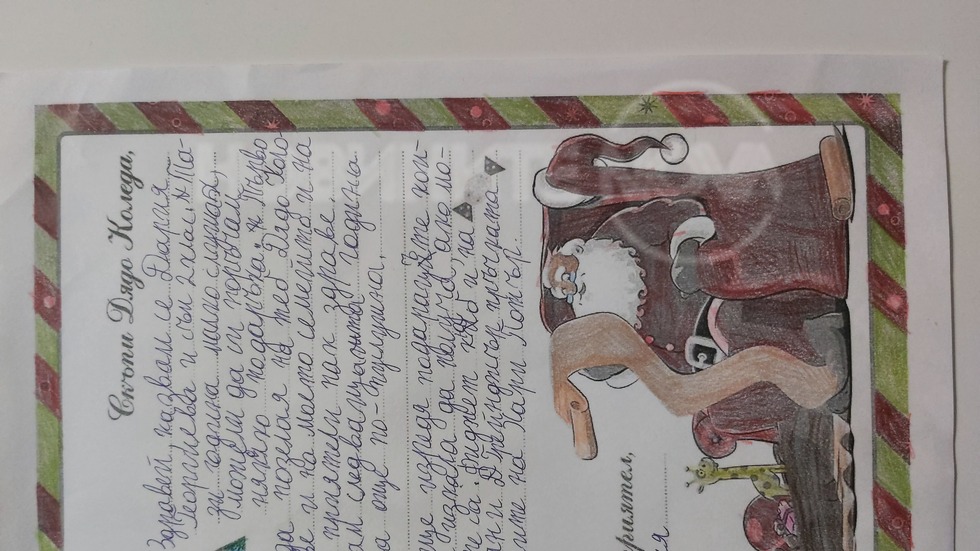 Скъпи Дядо Коледа,
Здравей, казвам се Дария
Георгиева и съм 2 клас. Та-
зи година малко слушах,
можели да си поръчам
някяко подаръка. Първо
да позелая на теб Дядо Коло-
и на моето семейство и на
приятели пак здраве.
следващата година
още по-пуслушна.
ще изредя подарагъте кои-
искала да получа, ако мо-
са: фиджет куб и на
и Дрейнджър пръчката
на Хари Потър.
приятел,